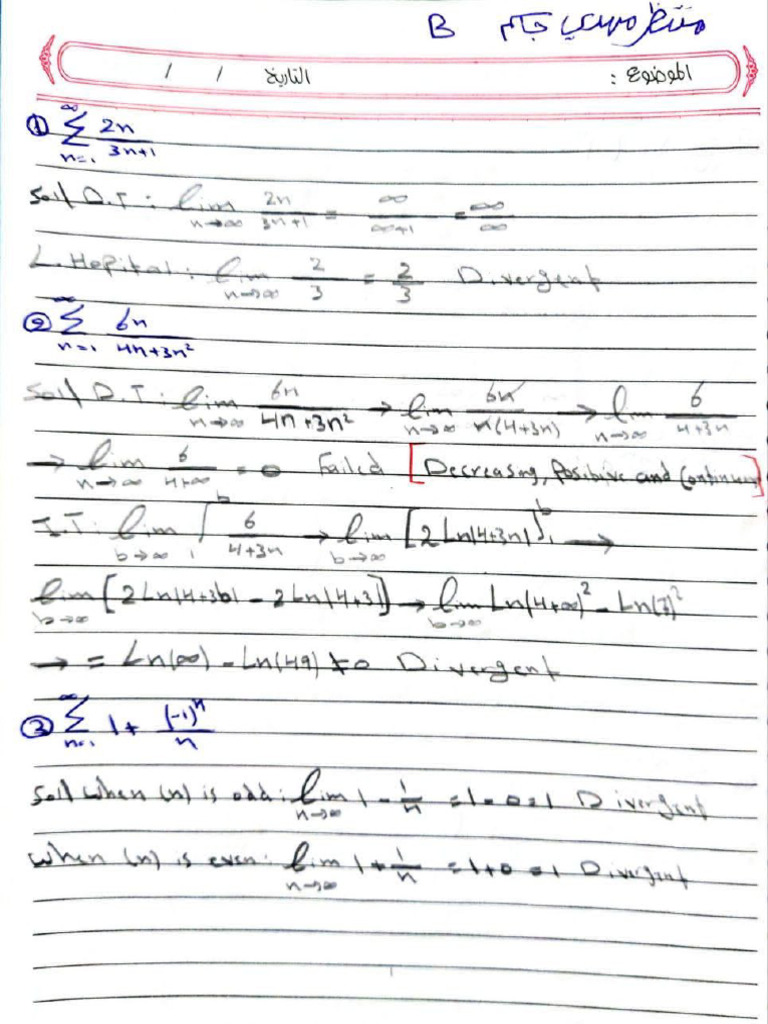 B منتظر مهدي جاسم
الموضوع : التاريخ / /
① ∞Σn=1 2n/3n+1
Sol/ D.T: lim n→∞ 2n/3n+1 = ∞/∞+1 = ∞/∞
L.Hopital: lim n→∞ 2/3 = 2/3 Divergent
② ∞Σn=1 6n/4n+3n²
Sol/ D.T: lim n→∞ 6n/4n+3n² → lim n→∞ 6n/n(4+3n) → lim n→∞ 6/4+3n
→ lim n→∞ 6/4+∞ = 0 Failed [Decreasing, Positive and Continuous]
I.T: lim b→∞ ∫₁ᵇ 6/4+3n → lim b→∞ [2Ln|4+3n|]₁ᵇ →
lim b→∞ [2Ln|4+3b| - 2Ln|4+3|] → lim b→∞ Ln(4+∞)² - Ln(7)²
→ = Ln(∞) - Ln(49) ≠ 0 Divergent
③ ∞Σn=1 1+ (-1)ⁿ/n
Sol/ when (n) is odd: lim n→∞ 1 - 1/n = 1-0=1 Divergent
when (n) is even: lim n→∞ 1+ 1/n = 1+0=1 Divergent